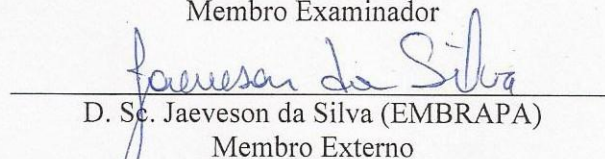 Membro Examinador
Jaeveson da Silva
D. Sc. Jaeveson da Silva (EMBRAPA)
Membro Externo